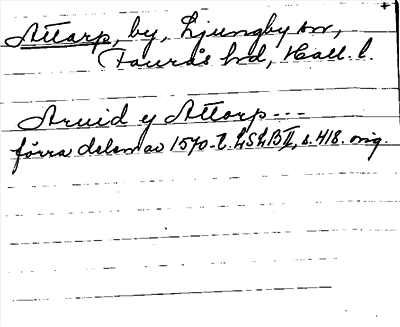 Attarp, by, Ljungby sn,
Faurås hd, Hall. l.
Arvid y Attarp ---
förra delen av 1570-t. LSLBII, s. 418. orig.